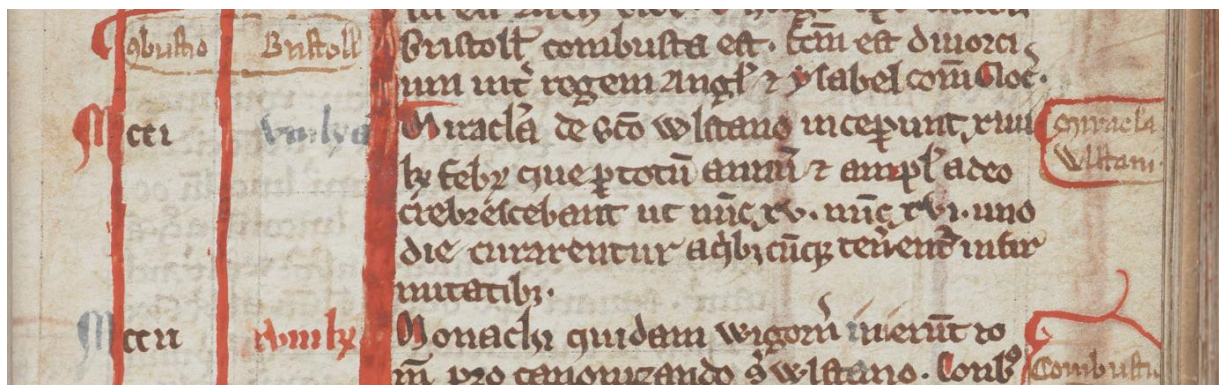 ꝯbustio Bristoll
Bristoll̄ combusta est. Itē est diuorci
um int̄ regem Angl̄ ⁊ ysabel com̄ Gloc̄.
Mcci
Miracl̄a de sc̄o wlstano inceperunt xviii
kl̄ febr̄ que ꝑ totū annū ⁊ ampl̄ adeo
crebrescebant ut nūc xv. nūc xvi. uno
die curarentur a qͥbꝫcūqꝫ teneren̄t infir
mitatibꝫ.
Miracl̄a
Wlstani.
Mccii
Monachi quidam wigorn̄ ierūt ro
m̄ pro canonizando s̄ wlstano. Combꝰ
Combustio